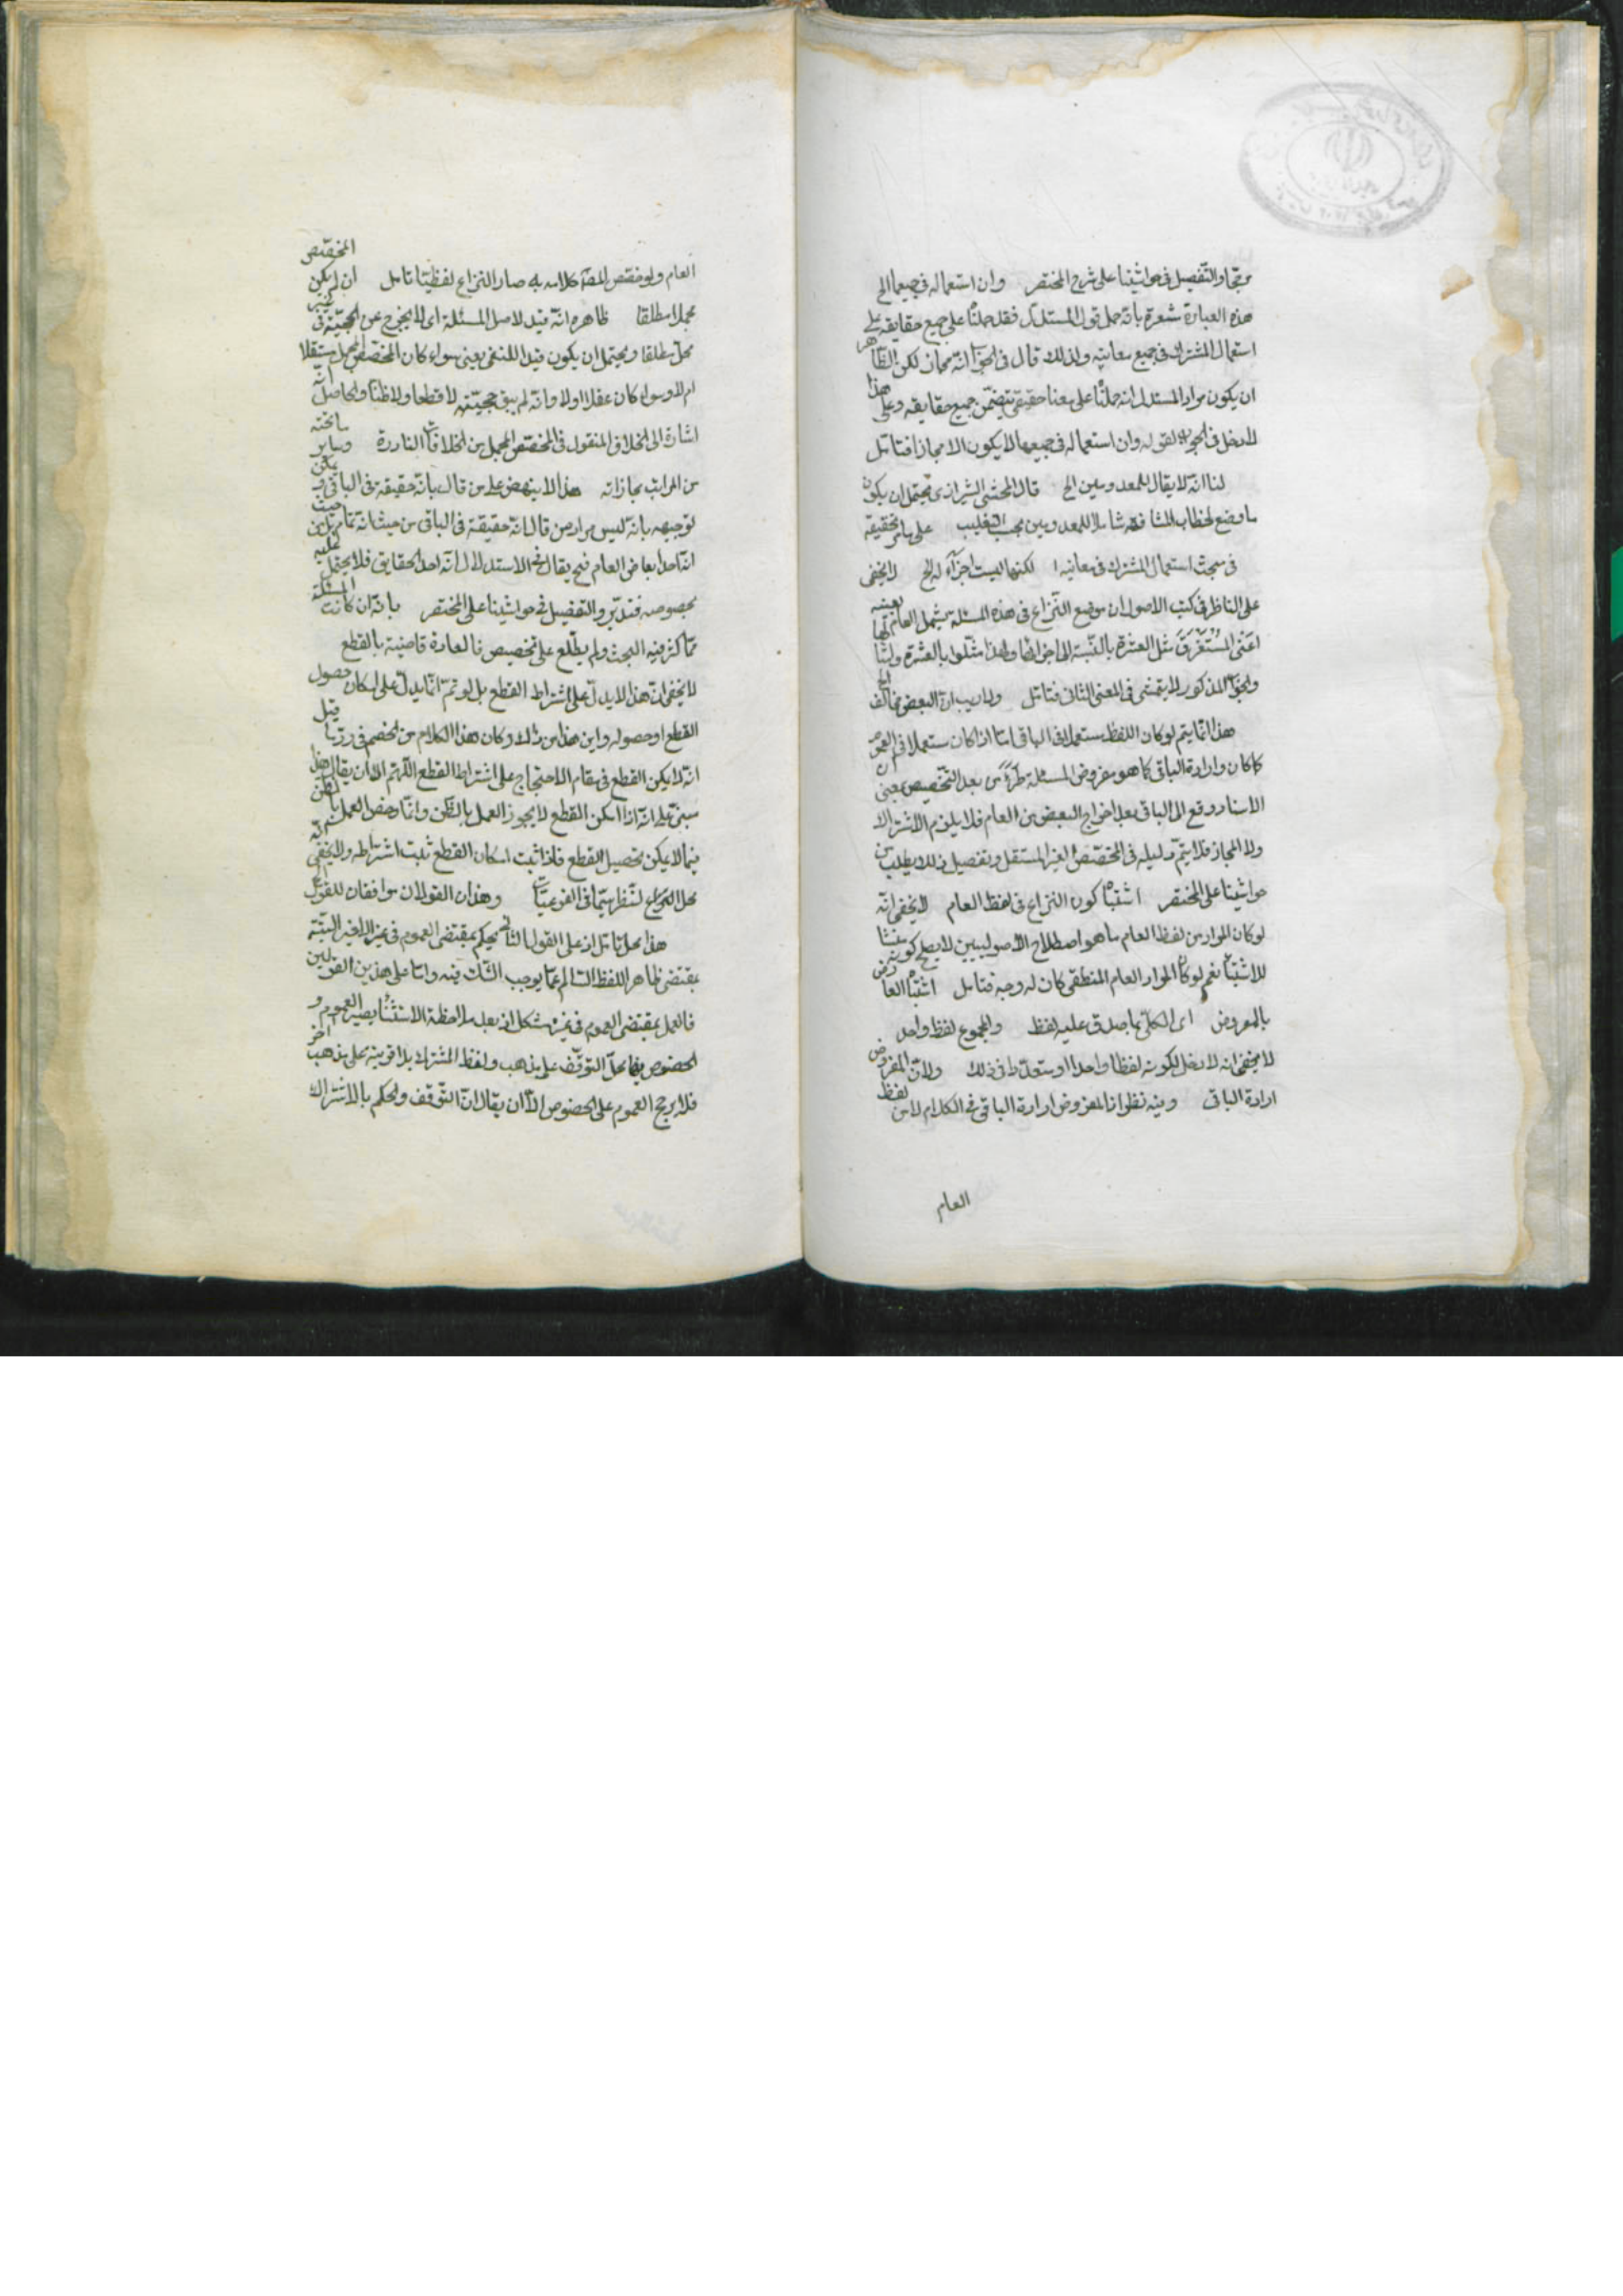 مرجحا والتفصيل فى حواشينا على شرح المختصر وان استعماله فى جميعها الخ
هذه العبارة مشعرة بانه حمل قول المستدل فقد حملنا على جميع حقايقه على
استعمال المشترك فى جميع معانيه ولذلك قال فى الجواب انه مجاز لكن الظاهر
ان يكون مراد المستدل انه حملنا على معنا حقيقى يتضمن جميع حقايقه وعلى هذا
لا دخل فى الجواب لقوله وان استعماله فى جميعها لا يكون الا مجازا فتامل
لنا انه لا يقال للمعدومين الخ قال المحشى الشيرازى يحتمل ان يكون
ما وضع لخطاب المشافهة شاملا للمعدومين بحسب التغليب على ما مر تحقيقه
فى مبحث استعمال المشترك فى معانيه لكنها ليست اجزآء له الخ لا يخفى
على الناظر فى كتب الاصول ان موضع النزاع فى هذه المسئلة يشمل العام
اعنى المستغرق مثل العشرة بالنسبة الى اجزائها ولهذا مثلوا بالعشرة
والجواب المذكور لا يتمشى فى المعنى الثانى فتامل ولا ريب ان البعض مخالف الخ
هذا انما يتم لو كان اللفظ مستعملا فى الباقى اما اذا كان مستعملا فى العموم
كما كان وارادة الباقى كما هو مفروض المسئلة طرء من بعد التخصيص بمعنى ان
الاسناد وقع الى الباقى بعد اخراج البعض من العام فلا يلزم الاشتراك
ولا المجاز فلا يتم دليله فى المخصص الغير المستقل وتفصيل ذلك يطلب من
حواشينا على المختصر اشتباه كون النزاع فى لفظ العام لا يخفى انه
لو كان المراد من لفظ العام ما هو اصطلاح الاصوليين لا يصلح كونه منشا
للاشتباه نعم لو كان المراد العام المنطقى كان له وجه فتامل اشتباه العارض
بالمعروض اى الكلى بما صدق عليه لفظ والمجموع لفظ واحد
لا يخفى انه لا دخل لكونه لفظا واحدا او متعددا فى ذلك ولان المفروض
ارادة الباقى وفيه نظر اذ المفروض ارادة الباقى فى الكلام لا من لفظ
العام
العام ولو خصص المصنف كلامه به صار النزاع لفظيا تامل ان لم يكن المخصص
مجملا مطلقا ظاهره انه قيد لاصل المسئلة اى لا يخرج عن الحجية فى غير
محل مطلقا ويحتمل ان يكون قيدا للمنفى يعنى سواء كان المخصص المجمل مستقلا
ام لا وسواء كان عقلا اولا وانه لم يبق حجيته لا قطعا ولا ظنا والحاصل انه
اشارة الى الخلاف المنقول فى المخصص المجمل من الخلافات النادرة وساير ما تحته
من المراتب مجازاته هذا لا ينهض على من قال بانه حقيقة فى الباقى ويمكن
توجيهه بانه ليس مراد من قال انه حقيقة فى الباقى من حيث انه تمام بل من حيث
انه احد ابعاض العام فح يقال فى الاستدلال انه احد الحقايق فلا يحتمل عليه
بخصوصه فتدبر والتفصيل فى حواشينا على المختصر بانه ان كانت المسئلة
مما كثر فيه البحث ولم يطلع على تخصيص فالعادة قاضية بالقطع
لا يخفى ان هذا لا يدل على اشتراط القطع بل لو تم انما يدل على امكان حصول
القطع او حصوله واين هذا من ذلك وكان هذا الكلام من الخصم فى رد ما قيل
انه لا يمكن القطع فى مقام الاحتجاج على اشتراط القطع اللهم الا ان يقال هذا
مبنى على انه اذا امكن القطع لا يجوز العمل بالظن وانما رخص العمل بالظن
فيما لا يمكن تحصيل القطع فاذا ثبت امكان القطع ثبت اشتراطه ولا يخفى انه
محل النظر سيما فى الفرعيات وهذان القولان موافقان للقول
هذا محل تامل اذ على القول الثانى يحكم بمقتضى العموم فى غير الاخير البتة
بمقتضى ظاهر اللفظ السالم عما يوجب الشك فيه واما على هذين القولين
فالعمل بمقتضى العموم فى غيره مشكل اذ بعد ملاحظة الاستثناء يصير العموم و
الخصوص فيها محل التوقف على مذهب ولفظ المشترك بلا قرينة على مذهب اخر
فلا يرجح العموم على الخصوص الا ان يقال ان التوقف والحكم بالاشتراك